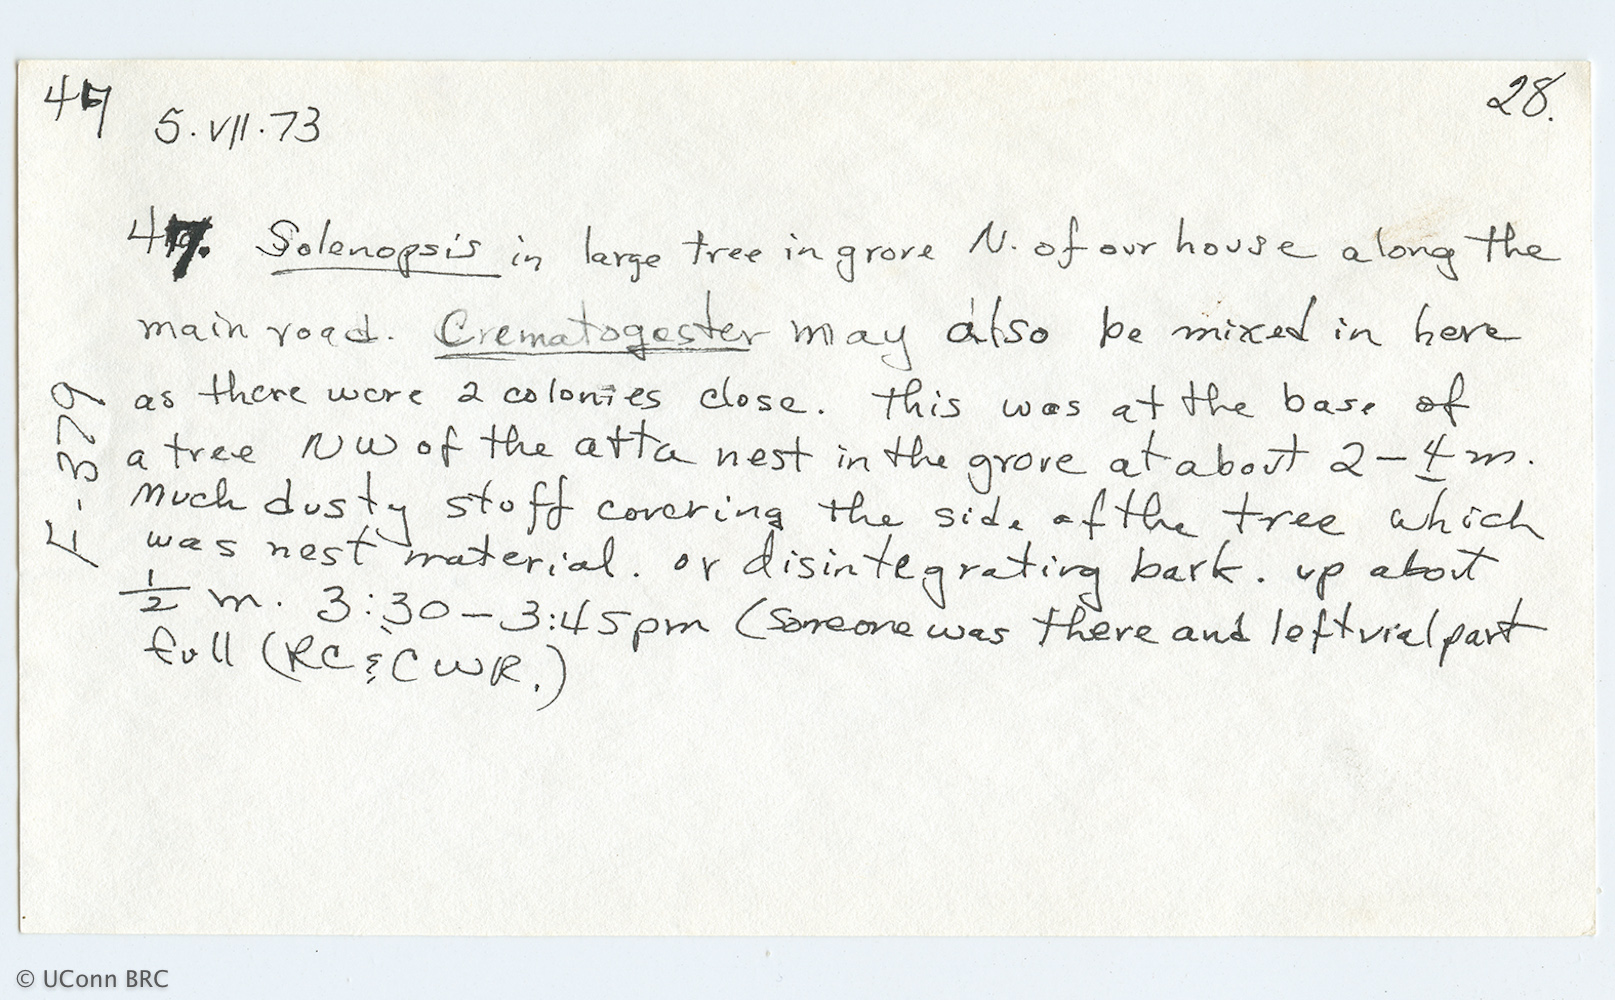 47 5.VII.73 28.
47. Solenopsis in large tree in grove N. of our house along the
main road. Crematogaster may also be mixed in here
as there were 2 colonies close. This was at the base of
a tree NW of the atta nest in the grove at about 2-4 m.
Much dusty stuff covering the side of the tree which
was nest material. or disintegrating bark. up about
1/2 m. 3:30-3:45pm (Someone was there and left vial part
full (RC & CWR.)
F-379
© UConn BRC